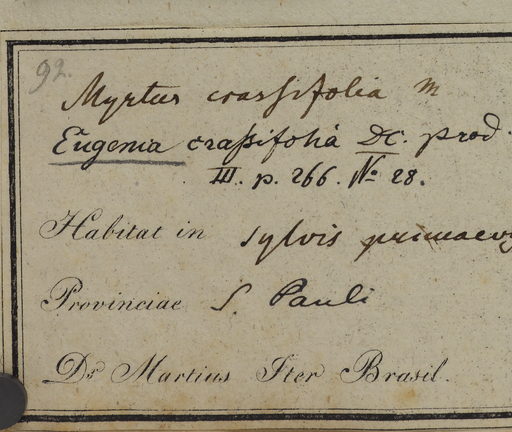 92.
Myrtus crassifolia m
Eugenia crassifolia DC. prod.
III. p. 266. No 28.
Habitat in sylvis primaev
Provinciae S. Pauli
Dr Martius Iter Brasil.